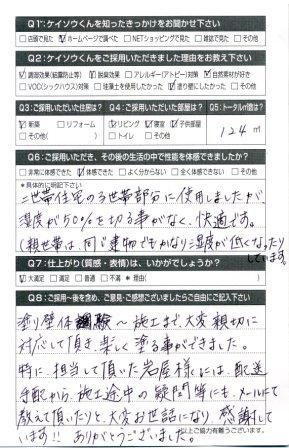 Q1:ケイソウくんを知ったきっかけをお聞かせ下さい
□店頭で見た ☑ホームページで調べた □NETショッピングで見た □雑誌で見た □その他
Q2:ケイソウくんをご採用いただきました理由をお教え下さい
☑調湿効果(結露防止等) ☑脱臭効果 □アレルギー(アトピー)対策 ☑自然素材が好き
□VOC(シックハウス)対策 □珪藻土を使用したかった ☑塗り壁にしたかった □その他
Q3:ご採用いただいた住居は?
☑新築 □リフォーム
□その他( )
Q4:ご採用いただいた部屋は?
☑リビング ☑寝室 ☑子供部屋
□トイレ □その他
Q5:トータル㎡数は?
124 ㎡
Q6:ご採用いただき、その後の生活の中で性能を体感できましたか?
□非常に体感できた ☑体感できた □よく分からない □全く体感できない □その他
*具体的に明記下さい
二世帯住宅の子世帯部分に使用しましたが、
湿度が50%を切る事がなく、快適です。
(親世帯は、同じ建物でもかなり湿度が低くなったり
しています。)
Q7:仕上がり(質感・表情)は、いかがでしょうか?
☑大満足 □満足 □普通 □不満 *理由( )
Q8:ご採用~後を含め、ご意見・ご感想ございましたらご自由にご記入下さい
塗り壁体験~施工まで、大変親切に
対応して頂き、楽しく塗る事ができました。
特に、担当して頂いた岩屋様には、配送
手配から、施工途中の疑問等にも、メールにて
教えて頂いたりと、大変お世話になり 感謝して
います!! ありがとうございました。
以上ご協力有難うございます